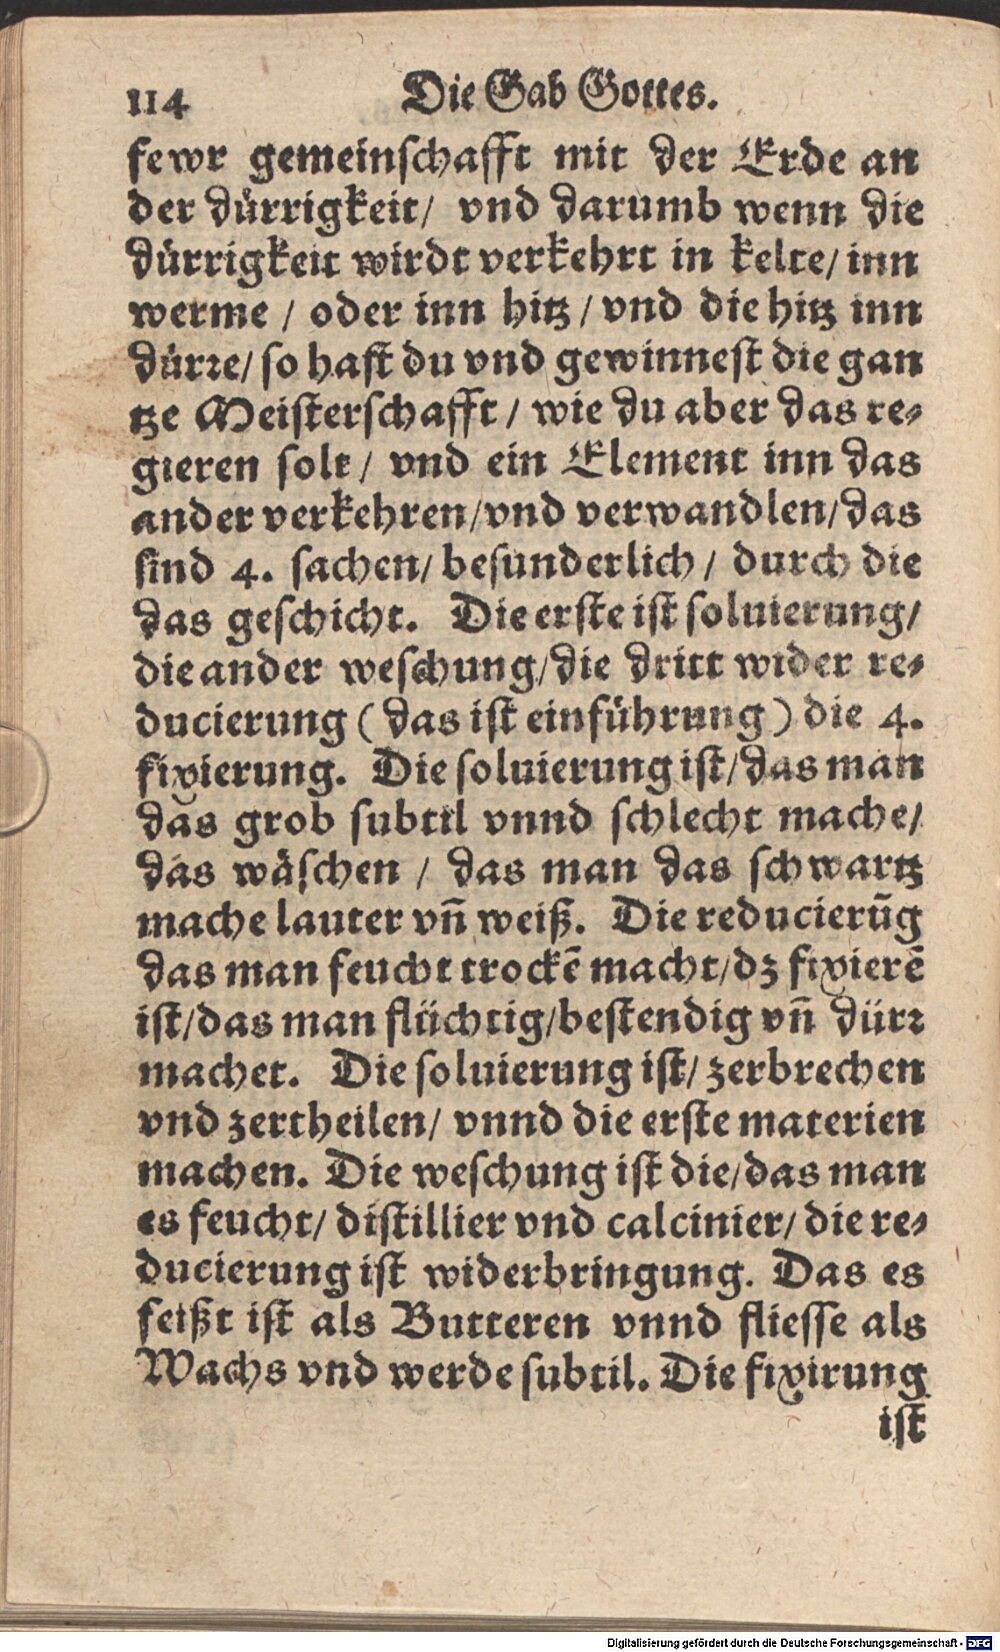 114 Die Gab Gottes.
fewr gemeinschafft mit der Erde an
der dürrigkeit/ vnd darumb wenn die
dürrigkeit wirdt verkehrt in kelte/ inn
werme / oder inn hitz / vnd die hitz inn
dürre/ so hast du vnd gewinnest die gan
tze Meisterschafft / wie du aber das re-
gieren solt / vnd ein Element inn das
ander verkehren/vnd verwandlen/das
sind 4. sachen/ besunderlich / durch die
das geschicht. Die erste ist soluierung/
die ander weschung/die dritt wider re-
ducierung ( das ist einführung ) die 4.
fixierung. Die soluierung ist/das man
das grob subtil vnnd schlecht mache/
das wäschen / das man das schwartz
mache lauter vñ weiß. Die reducierūg
das man feucht trockē macht/dz fixierē
ist/das man flüchtig/bestendig vñ dürr
machet. Die soluierung ist/ zerbrechen
vnd zertheilen/ vnnd die erste materien
machen. Die weschung ist die/das man
es feucht/ distillier vnd calcinier/ die re-
ducierung ist widerbringung. Das es
feißt ist als Butteren vnnd fliesse als
Wachs vnd werde subtil. Die fixirung
ist
Digitalisierung gefördert durch die Deutsche Forschungsgemeinschaft - DFG